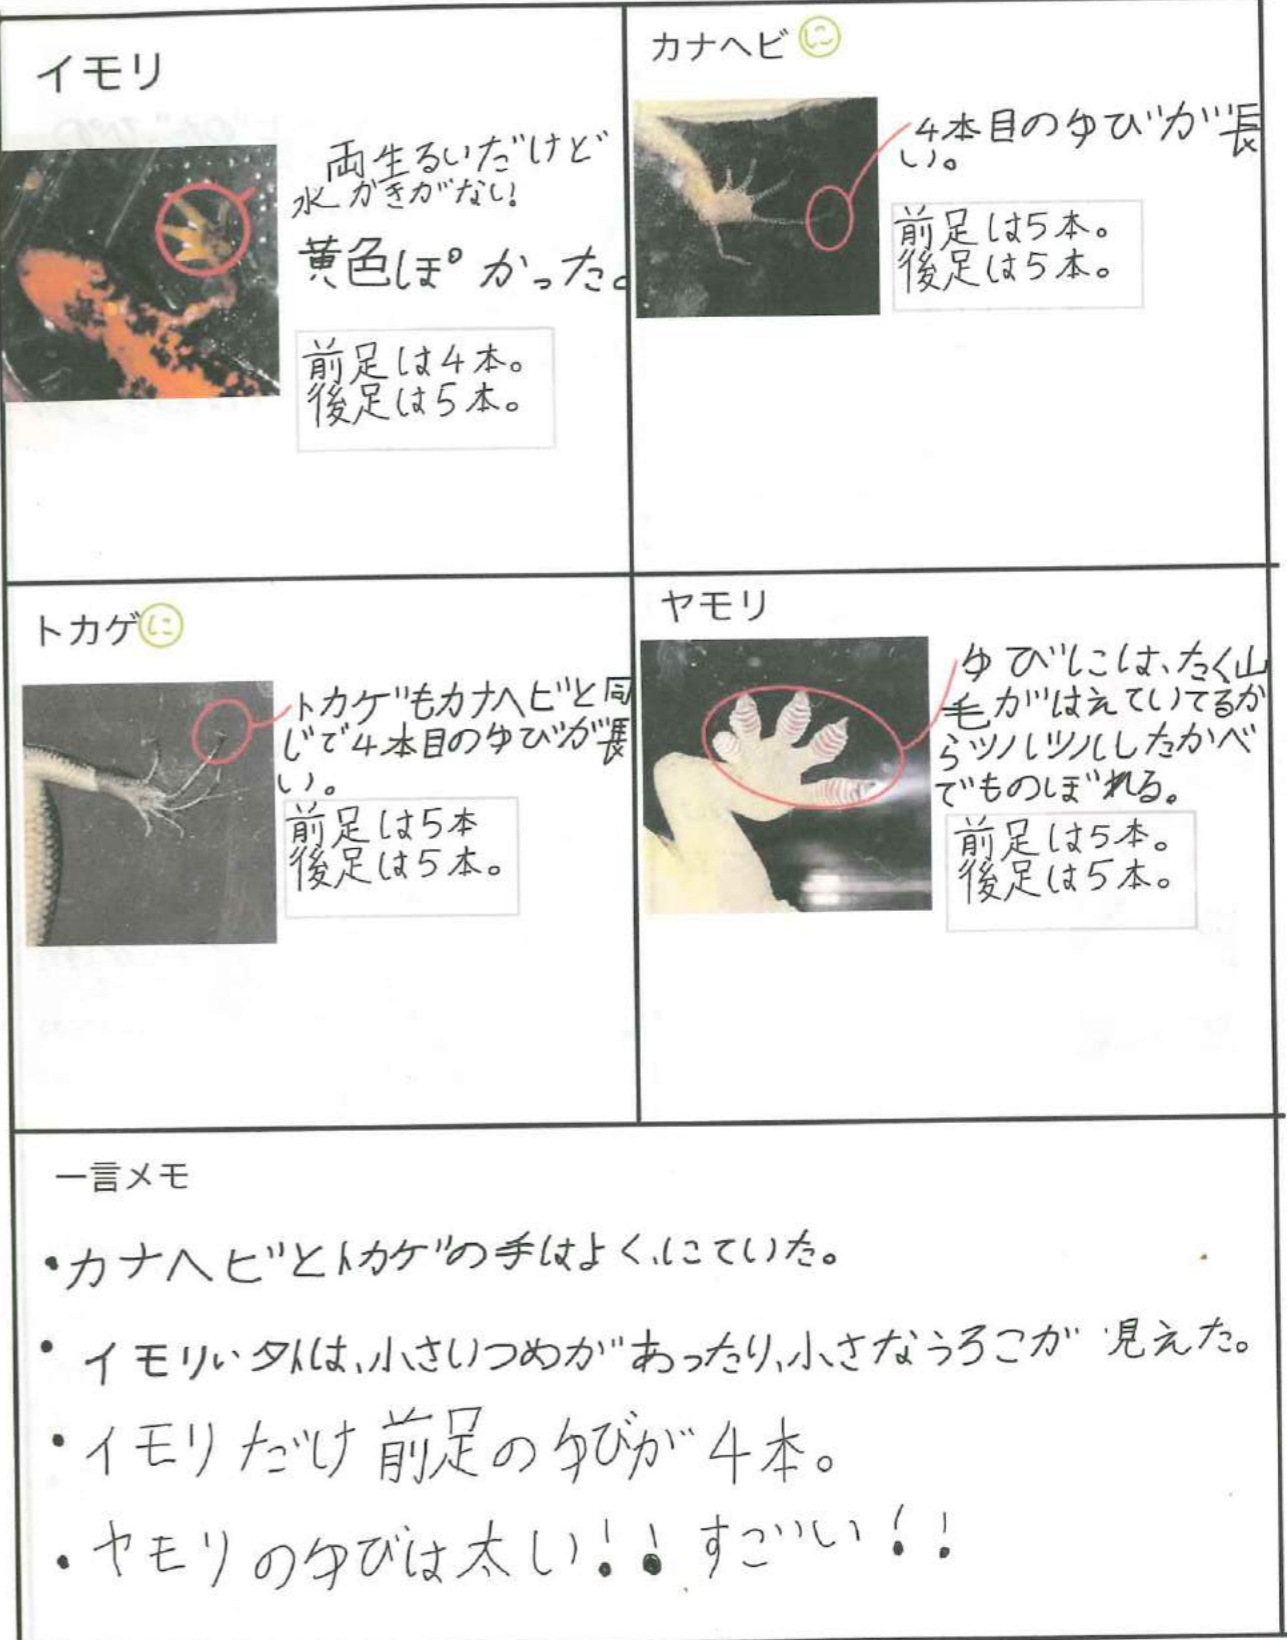 イモリ
両生るいだけど
水かきがない!
黄色ぽかった。
前足は4本。
後足は5本。
カナヘビ に
4本目のゆびが長
い。
前足は5本。
後足は5本。
トカゲ に
トカゲもカナヘビと同
じで4本目のゆびが長
い。
前足は5本
後足は5本。
ヤモリ
ゆびには、たく山
毛がはえていてるか
らツルツルしたかべ
でものぼれる。
前足は5本。
後足は5本。
一言メモ
・カナヘビとトカゲの手はよく、にていた。
・イモリい外は、小さいつめがあったり、小さなうろこが見えた。
・イモリだけ前足のゆびが4本。
・ヤモリのゆびは太い!!すごい!!